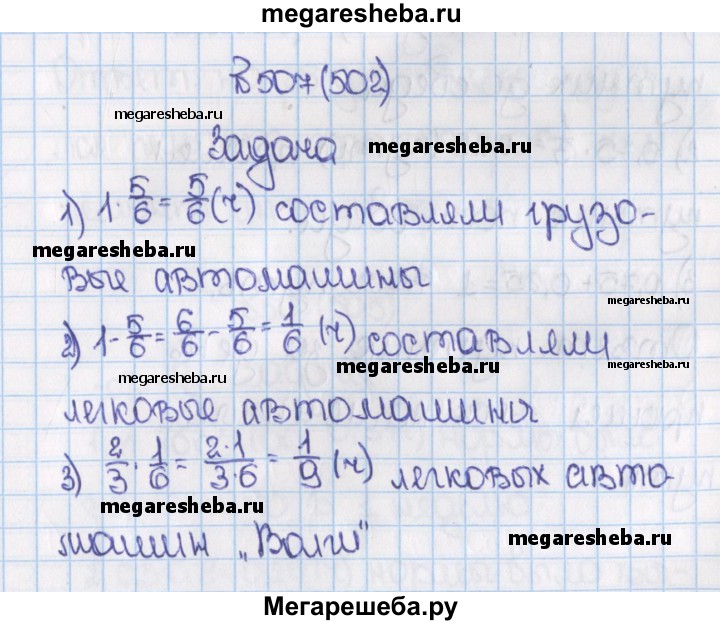 megaresheba.ru
В 507 (502)
megaresheba.ru
Задача
megaresheba.ru
1) 1 · 5/6 = 5/6 (ч) составляли грузо-
megaresheba.ru
вые автомашины
megaresheba.ru
2) 1 - 5/6 = 6/6 - 5/6 = 1/6 (ч) составляли
megaresheba.ru
megaresheba.ru
megaresheba.ru
легковые автомашины
3) 2/3 · 1/6 = 2·1/3·6 = 1/9 (ч) легковых авто-
megaresheba.ru
машин „Волги"
megaresheba.ru
Мегарешеба.ру